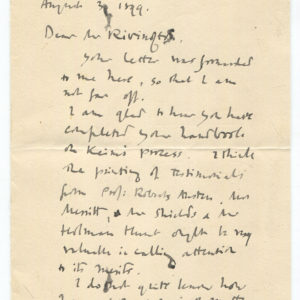 August 3, 1899.
Dear Mr Rivington.
Your letter was forwarded
to me here, so that I am
not far off.
I am glad to hear you have
completed your handbook
on Keim's process. I think
the printing of testimonials
from Prof. Roberts Austen, Mr
Merritt, Mr Shields & Mr
Holman Hunt ought to be very
valuable in calling attention
to its merits.
I do not quite know how